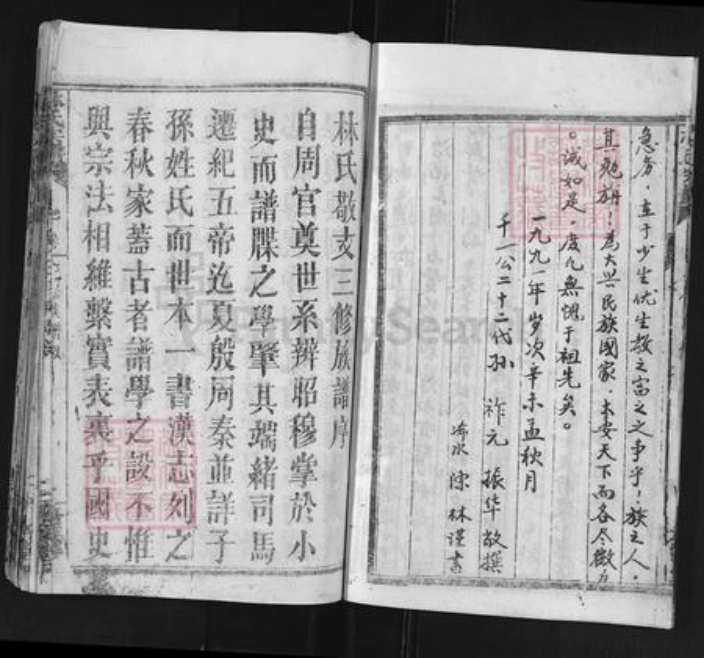 急务，在于少生优生教之富之之事乎！族之人，
其勉旃！为大兴民族国家、未安天下而各尽微力
。诚如是，庶几无愧于祖先矣。
一九九一年岁次辛未孟秋月
千一公二十二代孙 祚元 振华 敬撰
浠水 徐林谨书
林氏敬支三修族譜序
自周官奠世系辨昭穆掌於小
史而譜牒之學肇其端緒司馬
遷紀五帝迄夏殷周秦並詳子
孫姓氏而世本一書漢志列之
春秋家蓋古者譜學之設不惟
與宗法相維繫實表裏乎國史